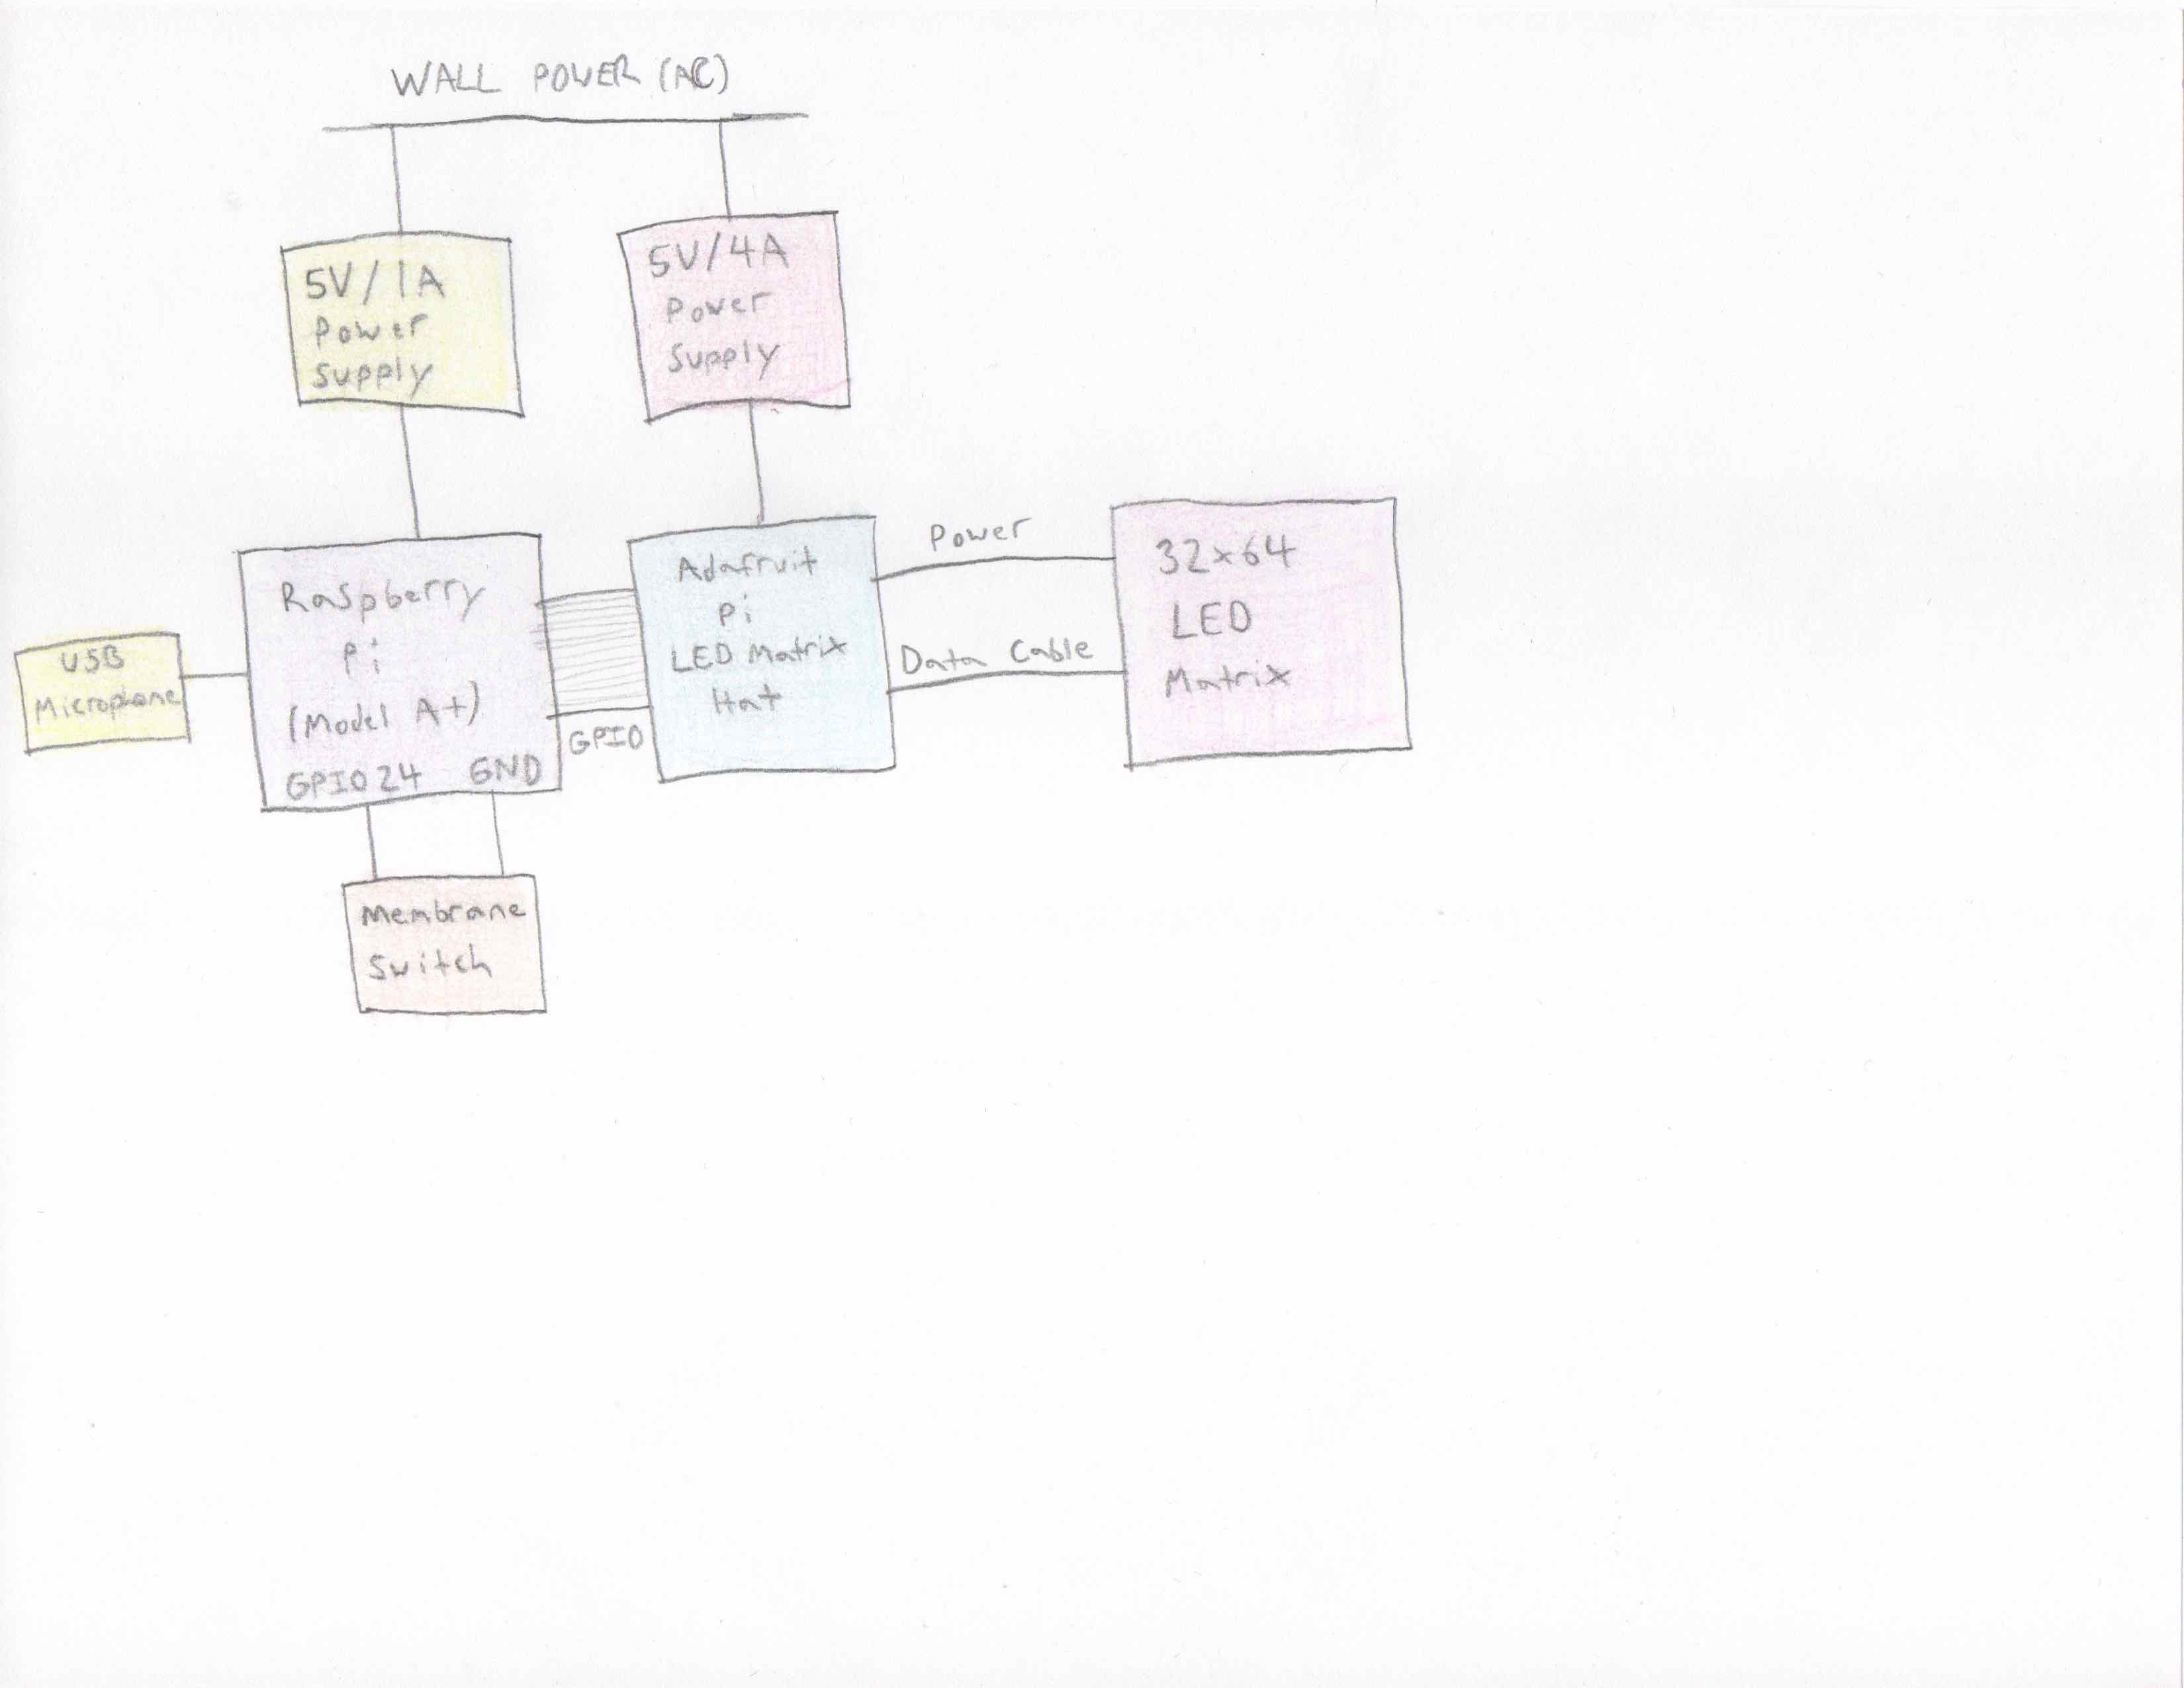 WALL POWER (AC)
5V/1A
Power
Supply
5V/4A
Power
Supply
Raspberry
Pi
(Model A+)
GPIO24 GND
GPIO
Adafruit
Pi
LED Matrix
Hat
Power
Data Cable
32x64
LED
Matrix
USB
Microphone
Membrane
Switch